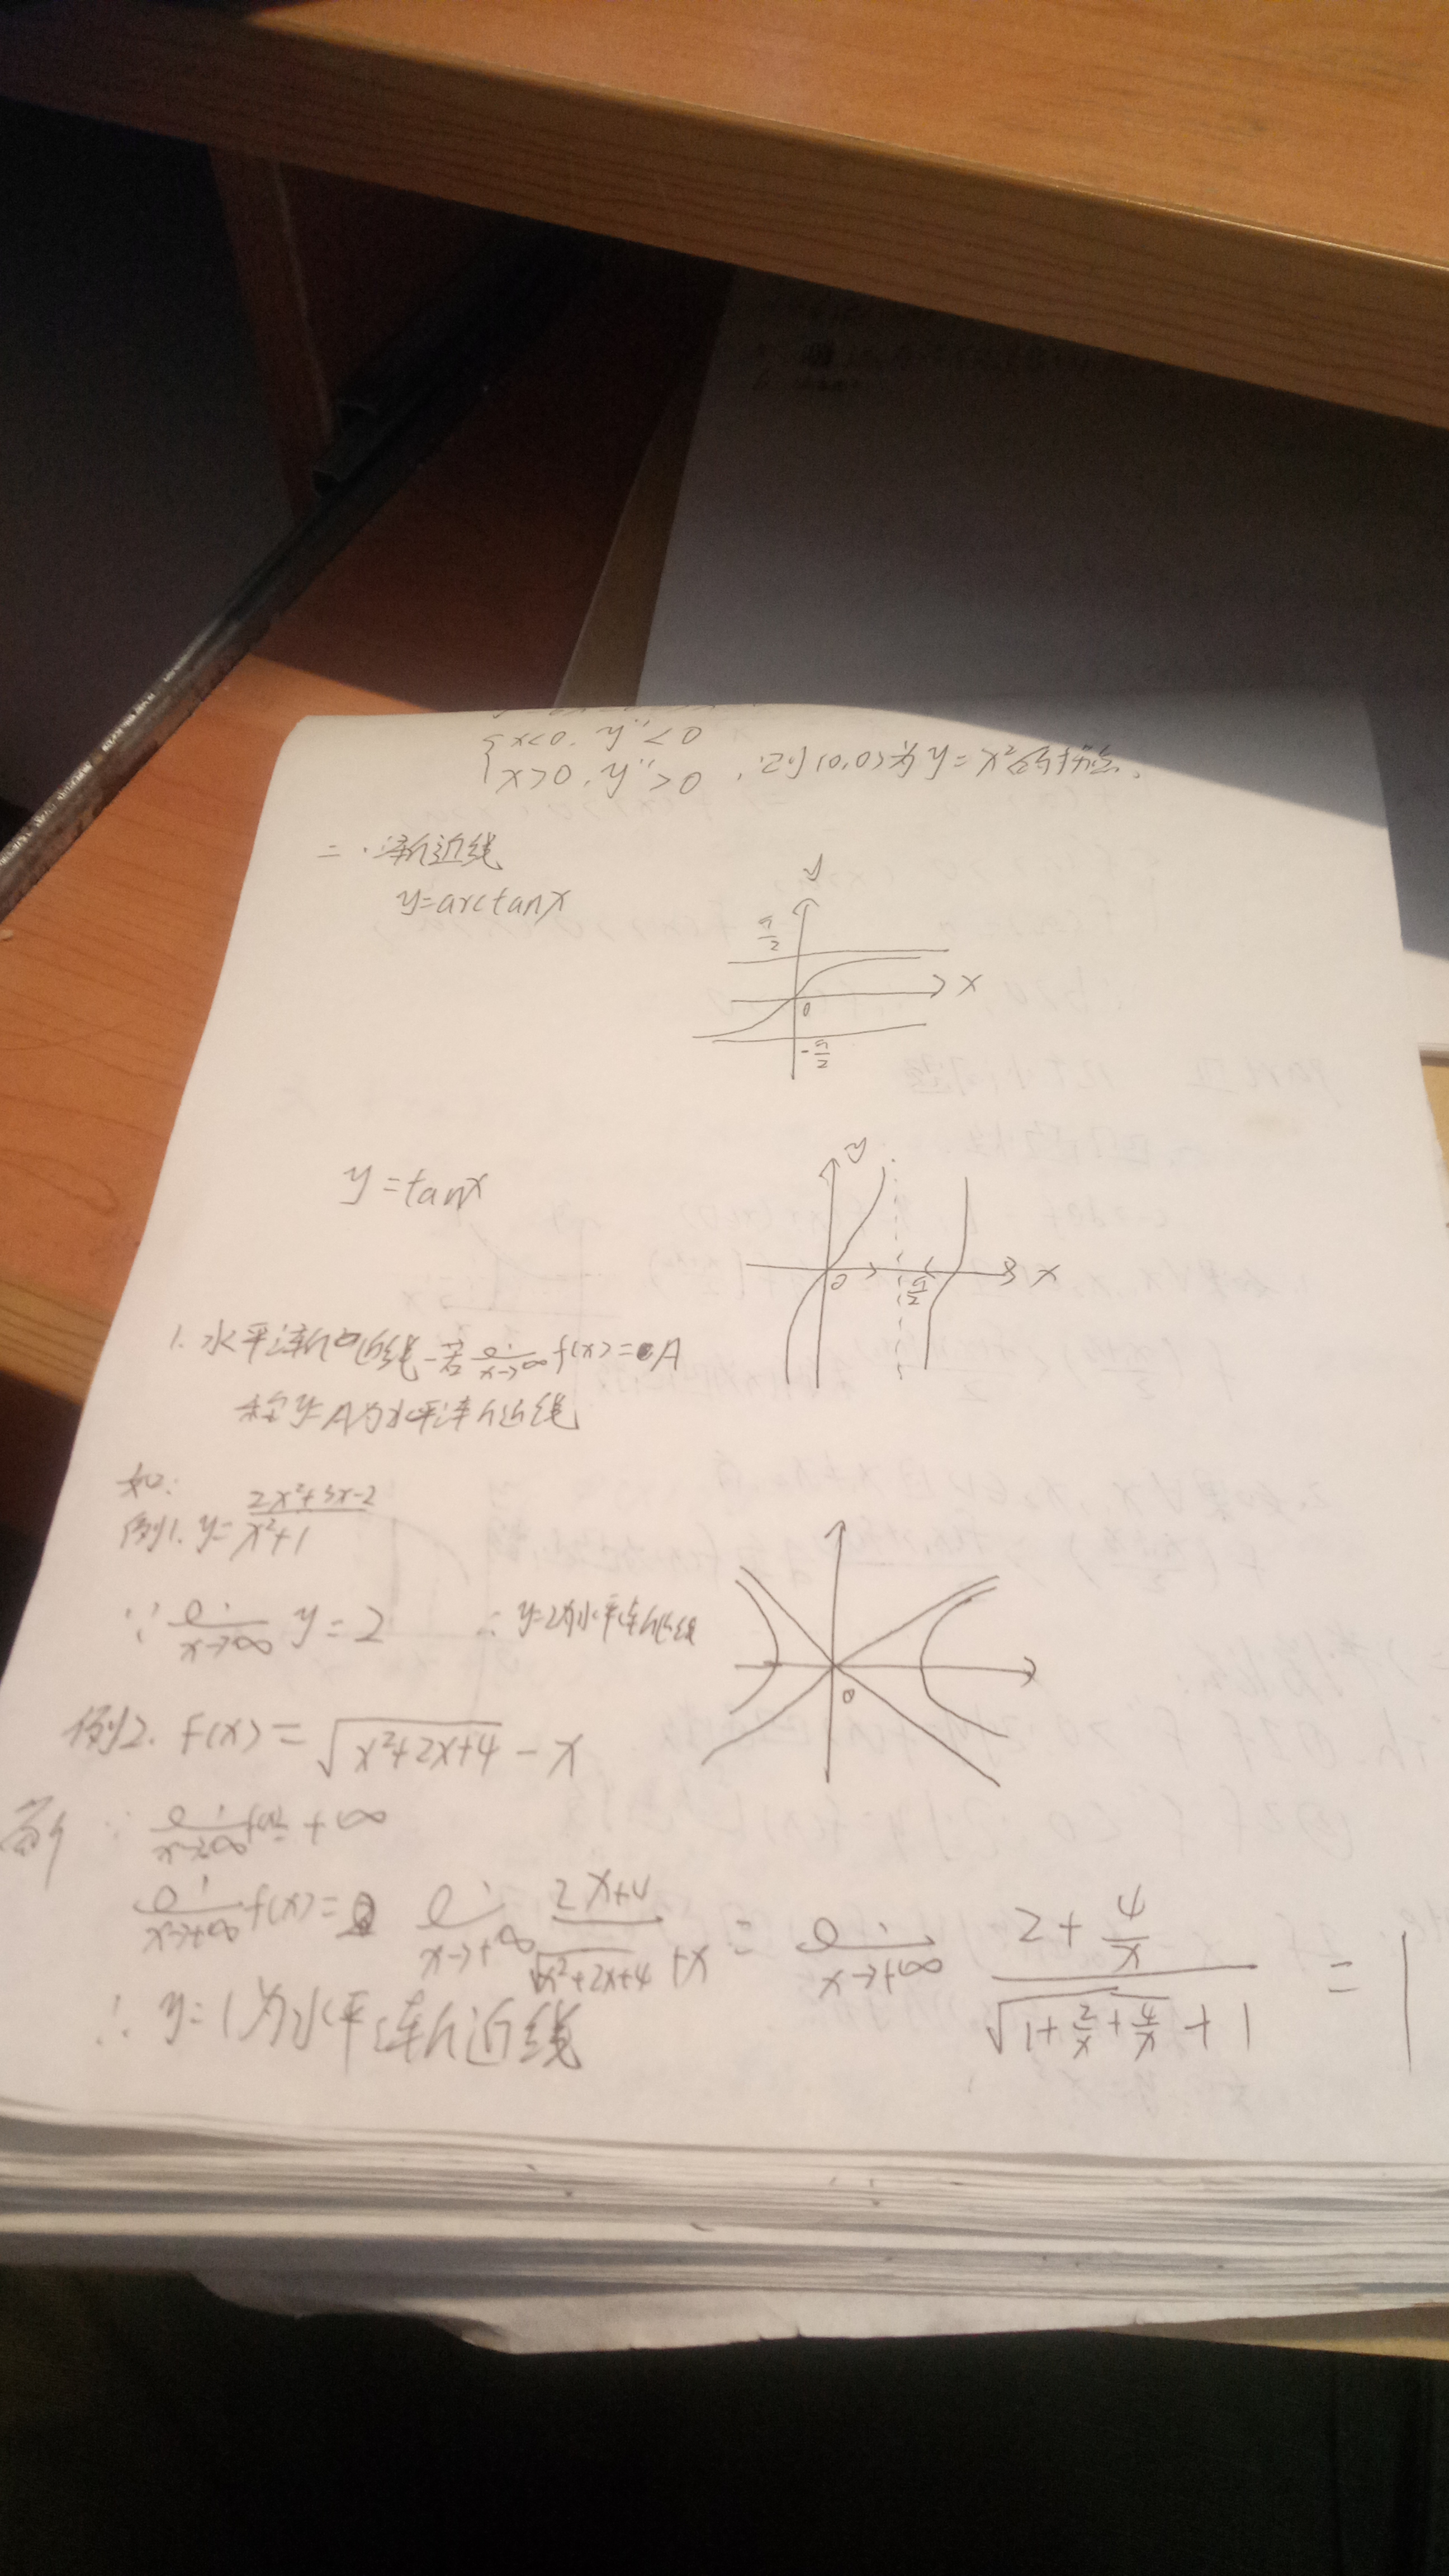 {x<0, y''<0
x>0, y''>0, 则(0,0)为y=x²的拐点.
二.渐近线
y=arctanx
y
π/2
x
0
-π/2
y=tanx
y
0
π/2
x
1.水平渐近线-若lim x→∞ f(x)=A
称y=A为水平渐近线
如:
例1. y=(2x²+3x-2)/(x²+1)
∵ lim x→∞ y=2 ∴ y=2为水平渐近线
0
例2. f(x)=√(x²+2x+4)-x
解 ∵ lim x→-∞ f(x)=+∞
lim x→+∞ f(x)= lim x→+∞ (2x+4)/(√(x²+2x+4)+x) = lim x→+∞ (2+4/x)/(√(1+2/x+4/x)+1) =1
∴ y=1为水平渐近线